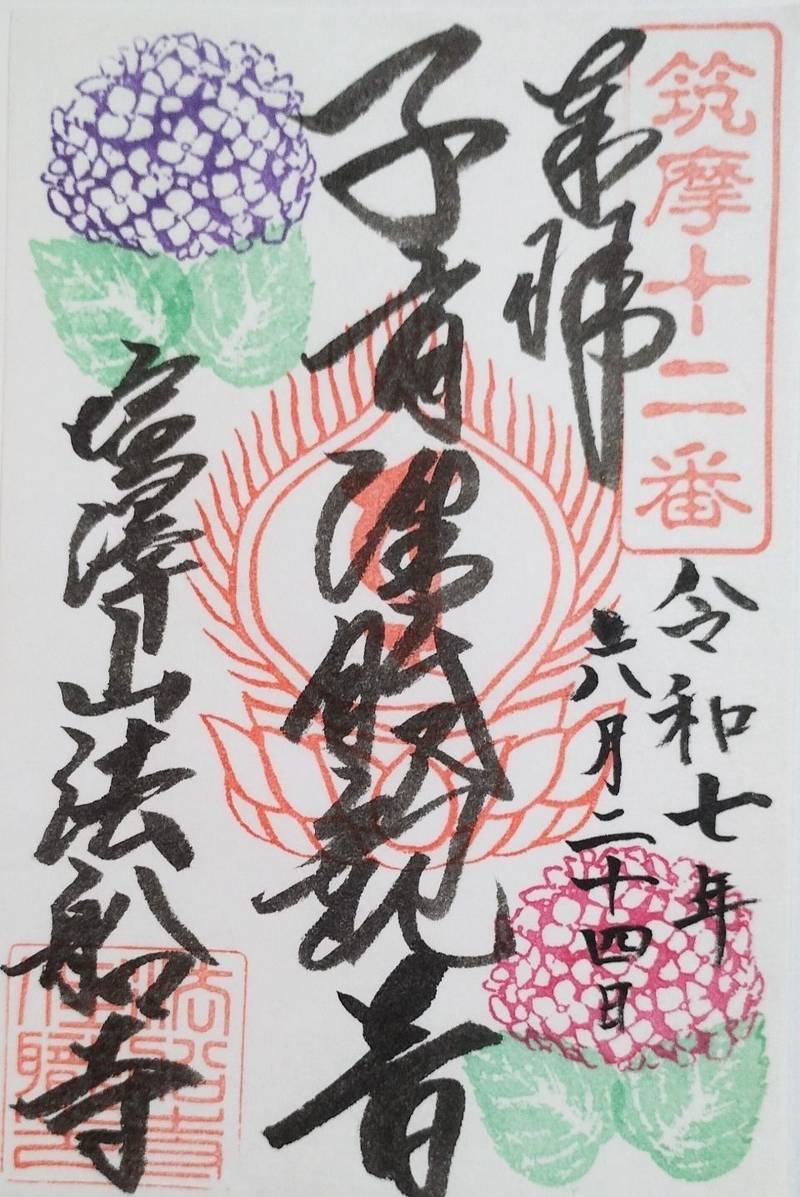 筑摩十二番
奉拝
令和七年
六月二十四日
子育准胝観音
澤山法船寺